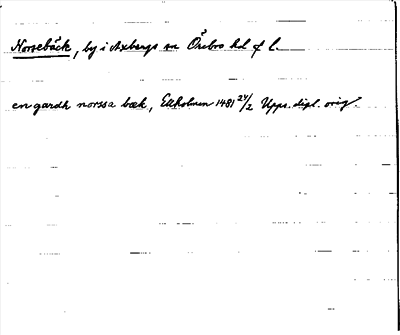 Norsebäck, by i Axbergs sn Örebro hd o l.
en gardh norssa bæk, Ekholmen 1481 24/2 Upps. dipl. orig.